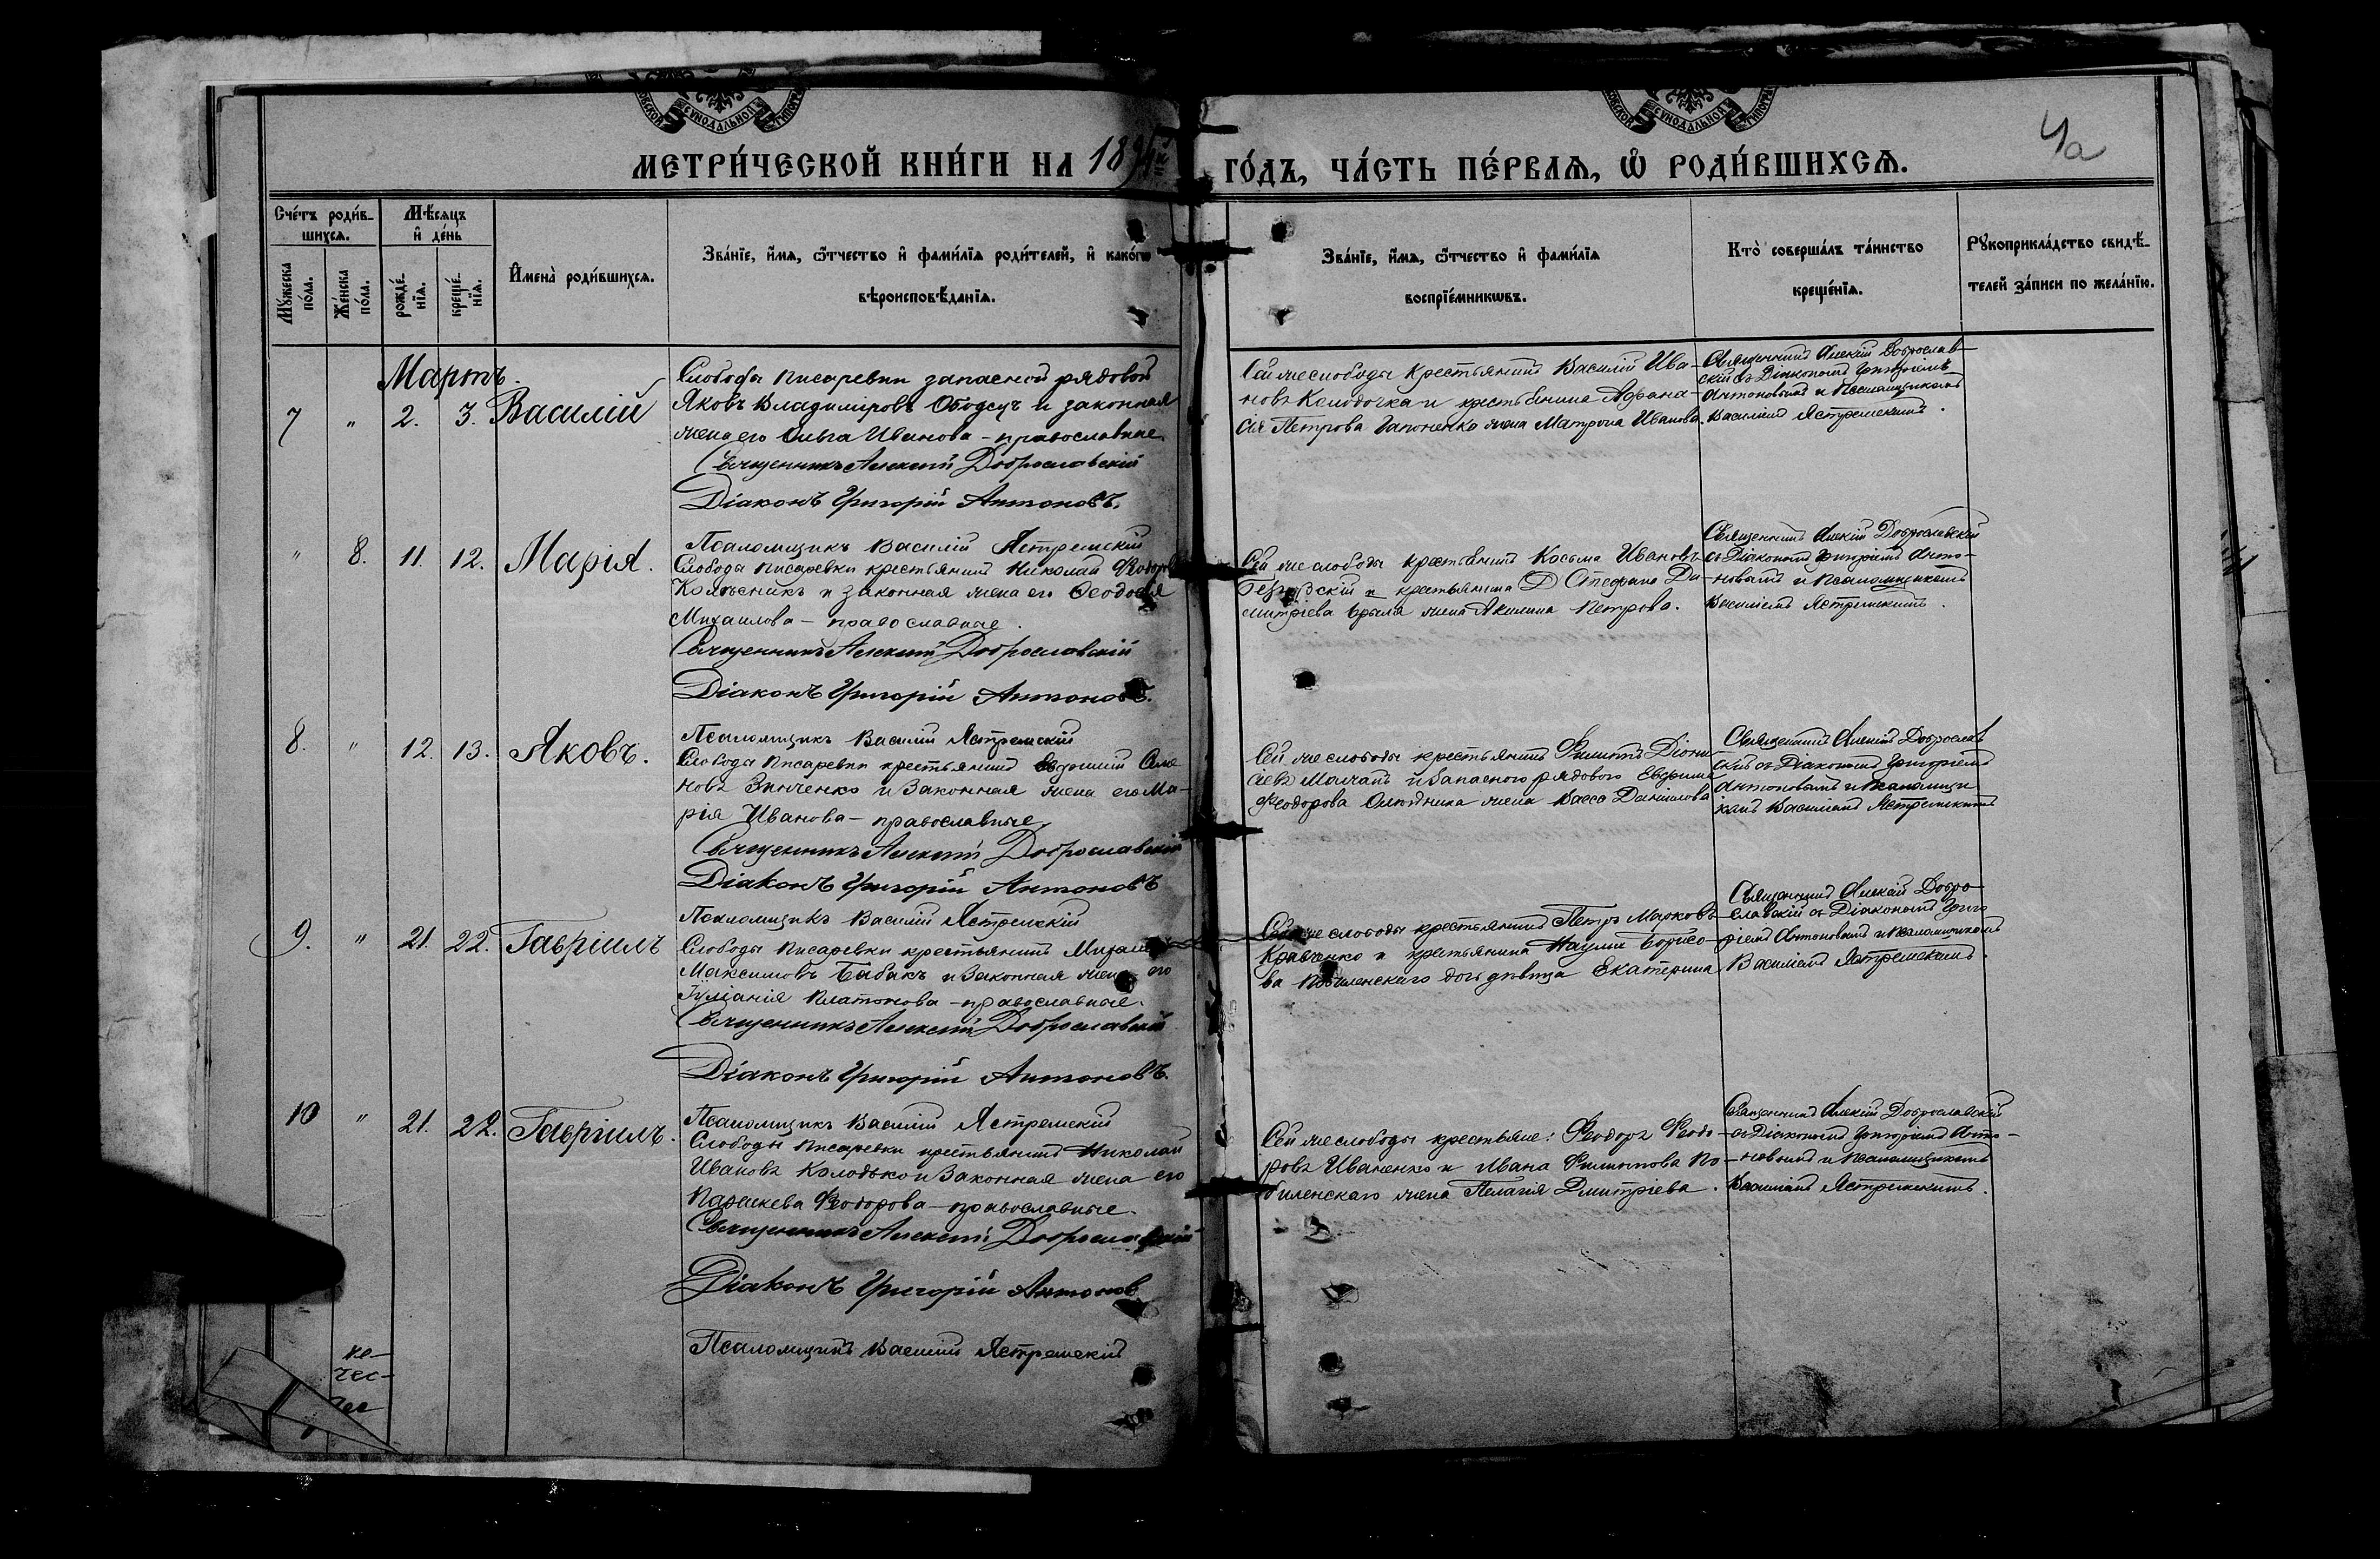 МЕТРИ́ЧЕСКОЙ КНИ́ГИ НА 189
ГО́ДЪ, ЧА́СТЬ ПЕ́РВАѦ, Ѡ҆ РОДИ́ВШИХСѦ.
4а
Сче́тъ роди́в-
шихсѧ.
Мѣ́сѧцъ
и҆ де́нь
Мꙋ́жеска
по́ла.
Же́нска
по́ла.
рожде́-
нїѧ.
креще́-
нїѧ.
И҆мена̀ роди́вшихсѧ.
Зва́нїе, и҆́мѧ, ѻ҆́тчество и҆ фами́лїѧ роди́телей, и҆ како́гѡ
вѣроисповѣ́данїѧ.
Зва́нїе, и҆́мѧ, ѻ҆́тчество и҆ фами́лїѧ
воспрїе́мникѡвъ.
Кто̀ соверша́лъ та́инство
креще́нїѧ.
Рꙋкоприкла́дство свидѣ́-
телей за́писи по жела́нїю.
Мартъ.
7 " 2. 3. Василій
Слободы Писаревки запасной рядовой
Яковъ Владиміровъ и законная
жена его Ольга Иванова – православные.
Священникъ Алексій Доброславскій
Діаконъ Григорій Антоновъ.
Псаломщикъ Василій Ястремскій
Сей же слободы крестьянинъ Василій Ива-
новъ Колодочка и крестьянина Афана-
сія Петрова Гапоненко жена Матрона Иванова.
Священникъ Алексій Доброслав-
скій съ Діакономъ Григоріемъ
Антоновымъ и Псаломщикомъ
Василіемъ Ястремскимъ.
" 8. 11. 12. Марія.
Слободы Писаревки крестьянинъ Николай Ѳеодоровъ
Колѣсникъ и законная жена его Ѳеодосія
Михаилова – православные.
Священникъ Алексій Доброславскій
Діаконъ Григорій Антоновъ.
Псаломщикъ Василій Ястремскій
Сей же слободы крестьянинъ Косьма Ивановъ
и крестьянина Стефана Ди-
митріева жена Акилина Петрова.
Священникъ Алексій Доброславскій
съ Діакономъ Григоріемъ Анто-
новымъ и Псаломщикомъ
Василіемъ Ястремскимъ.
8. " 12. 13. Яковъ.
Слободы Писаревки крестьянинъ
новъ Зинченко и законная жена его Ма-
рія Иванова – православные
Священникъ Алексій Доброславскій
Діаконъ Григорій Антоновъ
Псаломщикъ Василій Ястремскій
Сей же слободы крестьянинъ Филиппъ Діони-
сіевъ и запасного рядового Евфимія
Ѳеодорова жена Васса Даніилова
Священникъ Алексій Доброслав
скій съ Діакономъ Григоріемъ
Антоновымъ и Псаломщи
комъ Василіемъ Ястремскимъ
9. " 21. 22. Гавріилъ
Слободы Писаревки крестьянинъ Михаилъ
Максимовъ Бабакъ и законная жена его
Іуліанія Платонова – православные.
Священникъ Алексій Доброславскій
Діаконъ Григорій Антоновъ.
Псаломщикъ Василій Ястремскій
Сей же слободы крестьянинъ Петръ Марковъ
Кравченко и крестьянина Наума Борисо-
ва дочь дѣвица Екатерина
Священникъ Алексій Добро-
славскій съ Діакономъ Григо
ріемъ Антоновымъ и Псаломщикомъ
Василіемъ Ястремскимъ.
10 " 21. 22. Гавріилъ.
Слободы Писаревки крестьянинъ Николай
Ивановъ Колодько и законная жена его
Параскева Ѳеодорова – православные.
Священникъ Алексій Доброславскій
Діаконъ Григорій Антонов
Псаломщикъ Василій Ястремскій
Сей же слободы крестьяне: Ѳеодоръ Ѳеодо-
ровъ Иваненко и Ивана Филиппова По-
биленскаго жена Пелагія Дмитріева.
Священникъ Алексій Доброславскій
съ Діакономъ Григоріемъ Анто-
новымъ и Псаломщикомъ
Василіемъ Ястремскимъ.